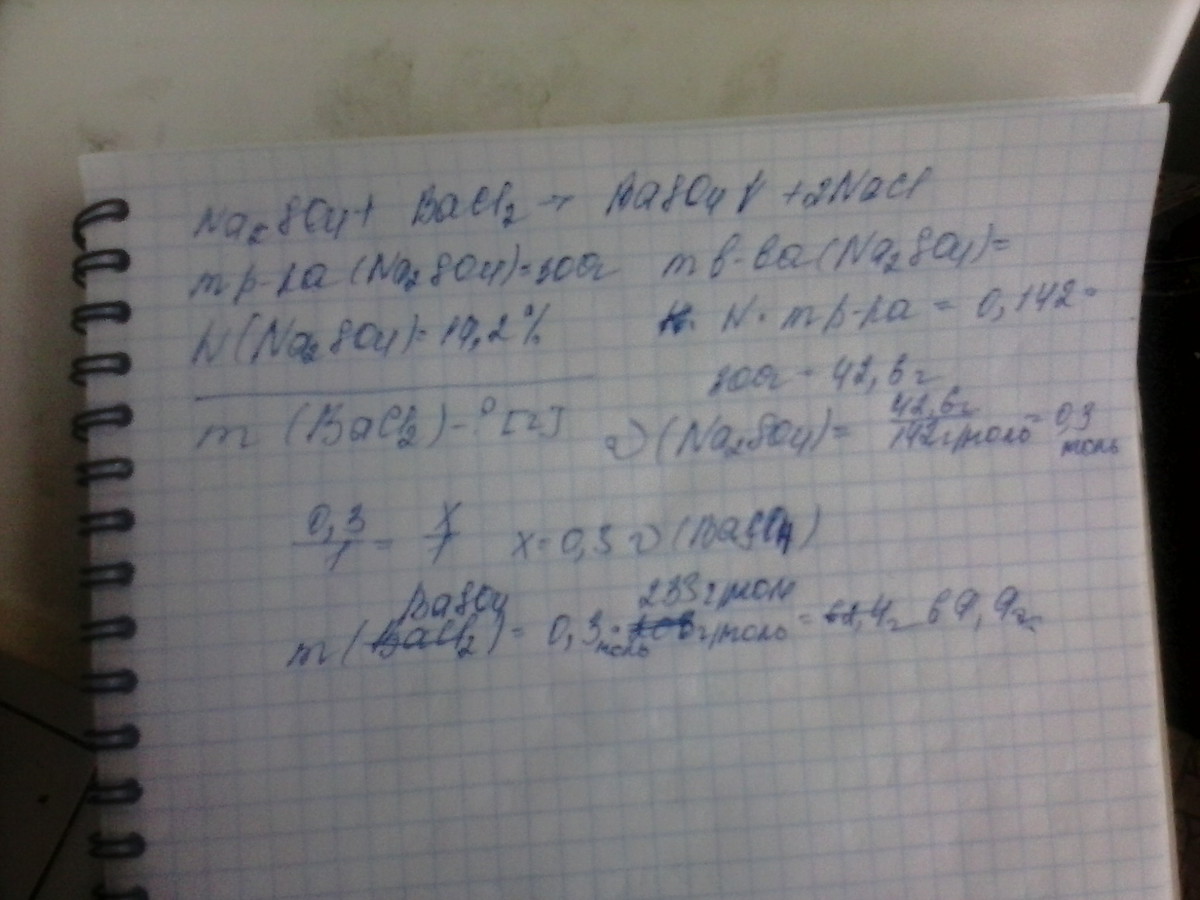 Na₂SO₄ + BaCl₂ → BaSO₄↓ + 2NaCl
m р-ра (Na₂SO₄) = 300г
W (Na₂SO₄) = 14,2%
m (BaCl₂) - ? [г]
m в-ва (Na₂SO₄) =
W · m р-ра = 0,142 ·
300г = 42,6г
ν (Na₂SO₄) = 42,6г / 142г/моль = 0,3 моль
0,3 / 1 = x / 1 x = 0,3 ν (BaSO₄)
BaSO₄ 233г/мол
m (BaCl₂) = 0,3 моль · г/моль = 69,9г